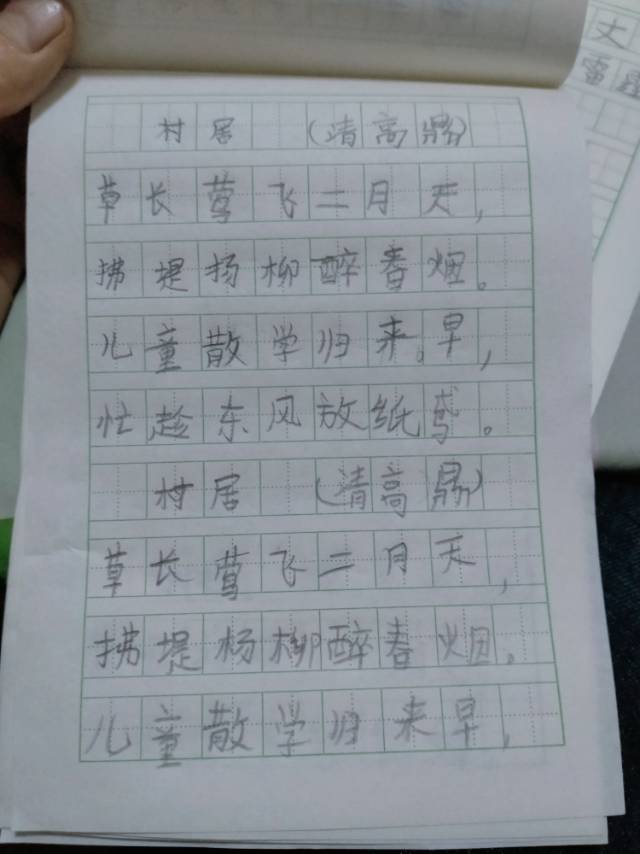 村居 (清高鼎)
草长莺飞二月天,
拂堤扬柳醉春烟。
儿童散学归来早,
忙趁东风放纸鸢。
村居 (清高鼎)
草长莺飞二月天,
拂堤杨柳醉春烟。
儿童散学归来早,